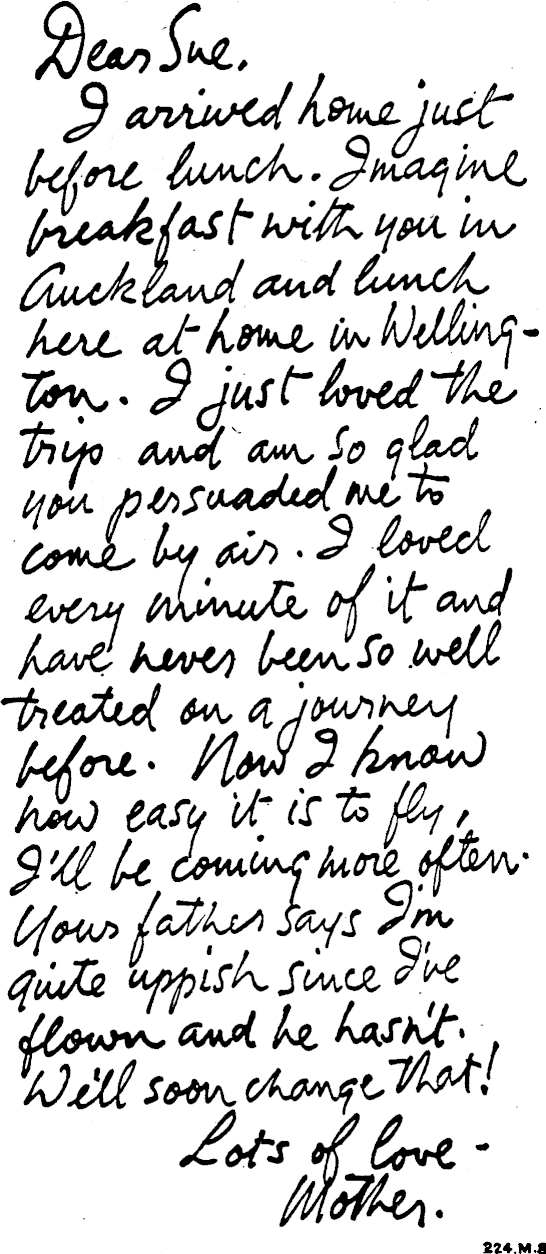 Dear Sue.
I arrived home just
before lunch. Imagine
breakfast with you in
Auckland and lunch
here at home in Welling-
ton. I just loved the
trip and am so glad
you persuaded me to
come by air. I loved
every minute of it and
have never been so well
treated on a journey
before. Now I know
how easy it is to fly,
I'll be coming more often.
Your father says I'm
quite uppish since I've
flown and he hasn't.
We'll soon change that!
Lots of love -
Mother.
224.M.8